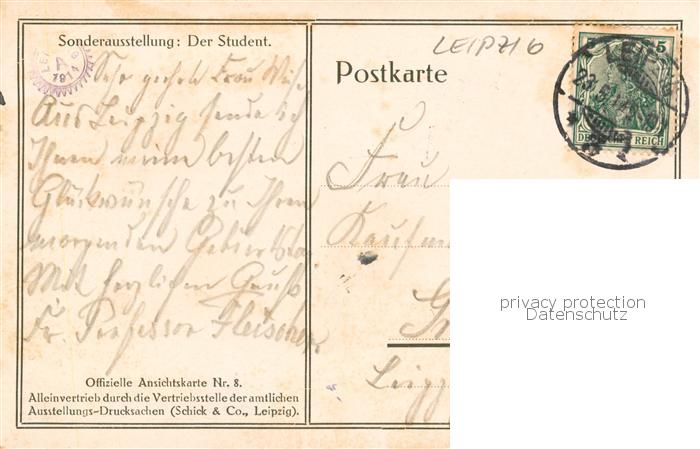 Sonderausstellung: Der Student.
Sehr geehrte Frau
Aus Leipzig sende ich
Ihnen meine besten
Glückwünsche zu Ihrem
morgenden Geburtstag
Mit herzlichem Gruß
Fr. Professor Fleischer
Offizielle Ansichtskarte Nr. 8.
Alleinvertrieb durch die Vertriebsstelle der amtlichen
Ausstellungs-Drucksachen (Schick & Co., Leipzig).
LEIPZIG
Postkarte
5 5
DEUTSCHES REICH
LEIPZIG
Frau
Kaufm
Leipz
privacy protection
Datenschutz